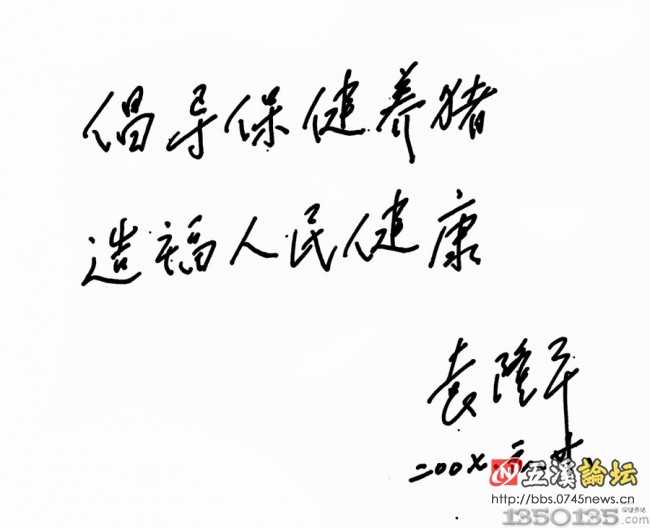 倡导保健养猪
造福人民健康
袁隆平
二00
五溪論坛
http://bbs.0745news.cn
1350135.com